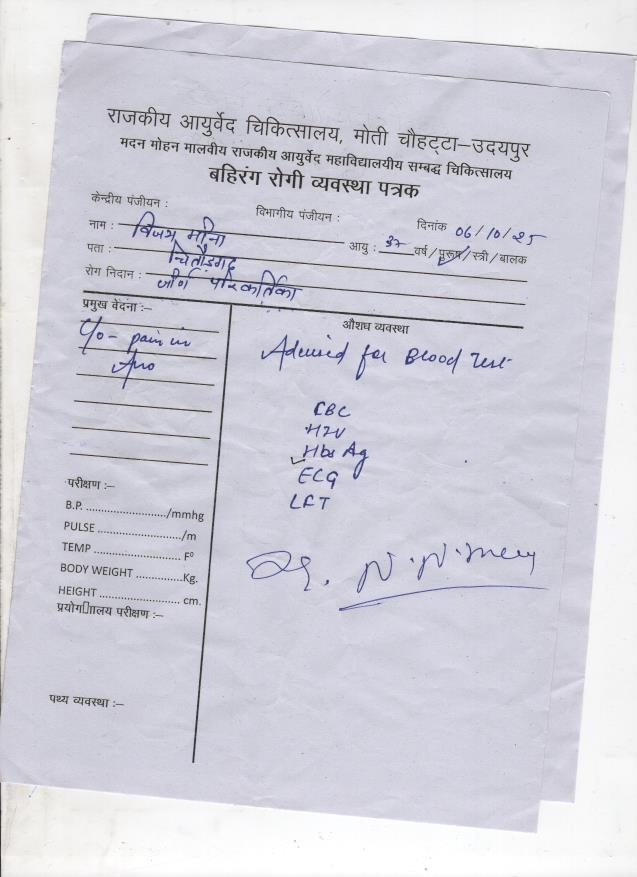 राजकीय आयुर्वेद चिकित्सालय, मोती चौहट्टा–उदयपुर
मदन मोहन मालवीय राजकीय आयुर्वेद महाविद्यालयीय सम्बद्ध चिकित्सालय
बहिरंग रोगी व्यवस्था पत्रक
केन्द्रीय पंजीयन : विभागीय पंजीयन : दिनांक 06/10/25
नाम : विजय मीना आयु : 37 वर्ष/पुरूष/स्त्री/बालक
पता : चितौड़गढ़
रोग निदान : जीर्ण परिकर्तिका
प्रमुख वेदना :–
C/o - pain in
Ano
औशध व्यवस्था
Advised for Blood Test
CBC
HIV
Hbs Ag
ECG
LFT
Dr. N. N.
परीक्षण :–
B.P. ............................/mmhg
PULSE ............................/m
TEMP ............................ F°
BODY WEIGHT ..............Kg.
HEIGHT .......................... cm.
प्रयोगालय परीक्षण :–
पथ्य व्यवस्था :–